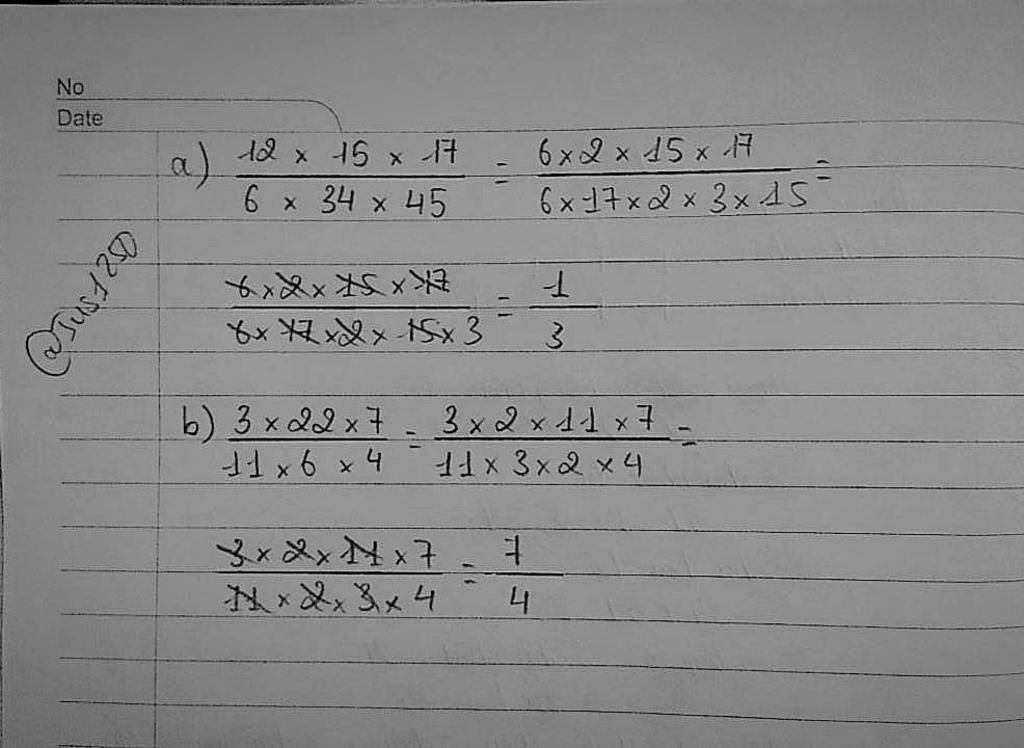 No
Date
a) 12 × 15 × 17 / 6 × 34 × 45 = 6 × 2 × 15 × 17 / 6 × 17 × 2 × 3 × 15 =
6 × 2 × 15 × 17 / 6 × 17 × 2 × 15 × 3 = 1 / 3
@Jus1250
b) 3 × 22 × 7 / 11 × 6 × 4 = 3 × 2 × 11 × 7 / 11 × 3 × 2 × 4 =
3 × 2 × 11 × 7 / 11 × 2 × 3 × 4 = 7 / 4